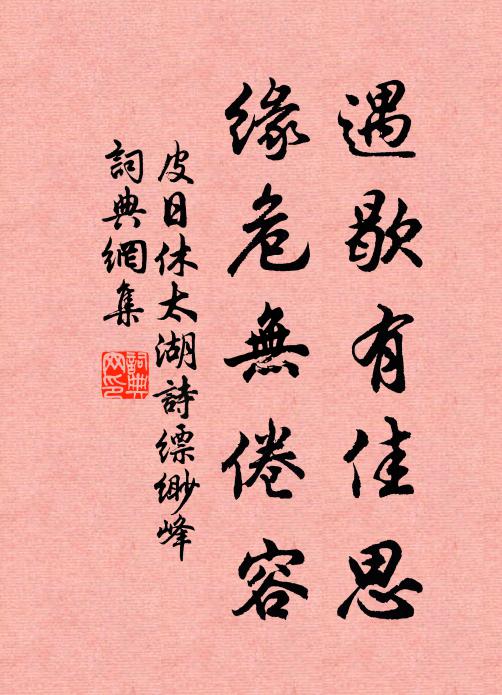 遇歇有佳思
緣危無倦容
皮日休太湖詩縹緲峰
詞典網集
詞典網印